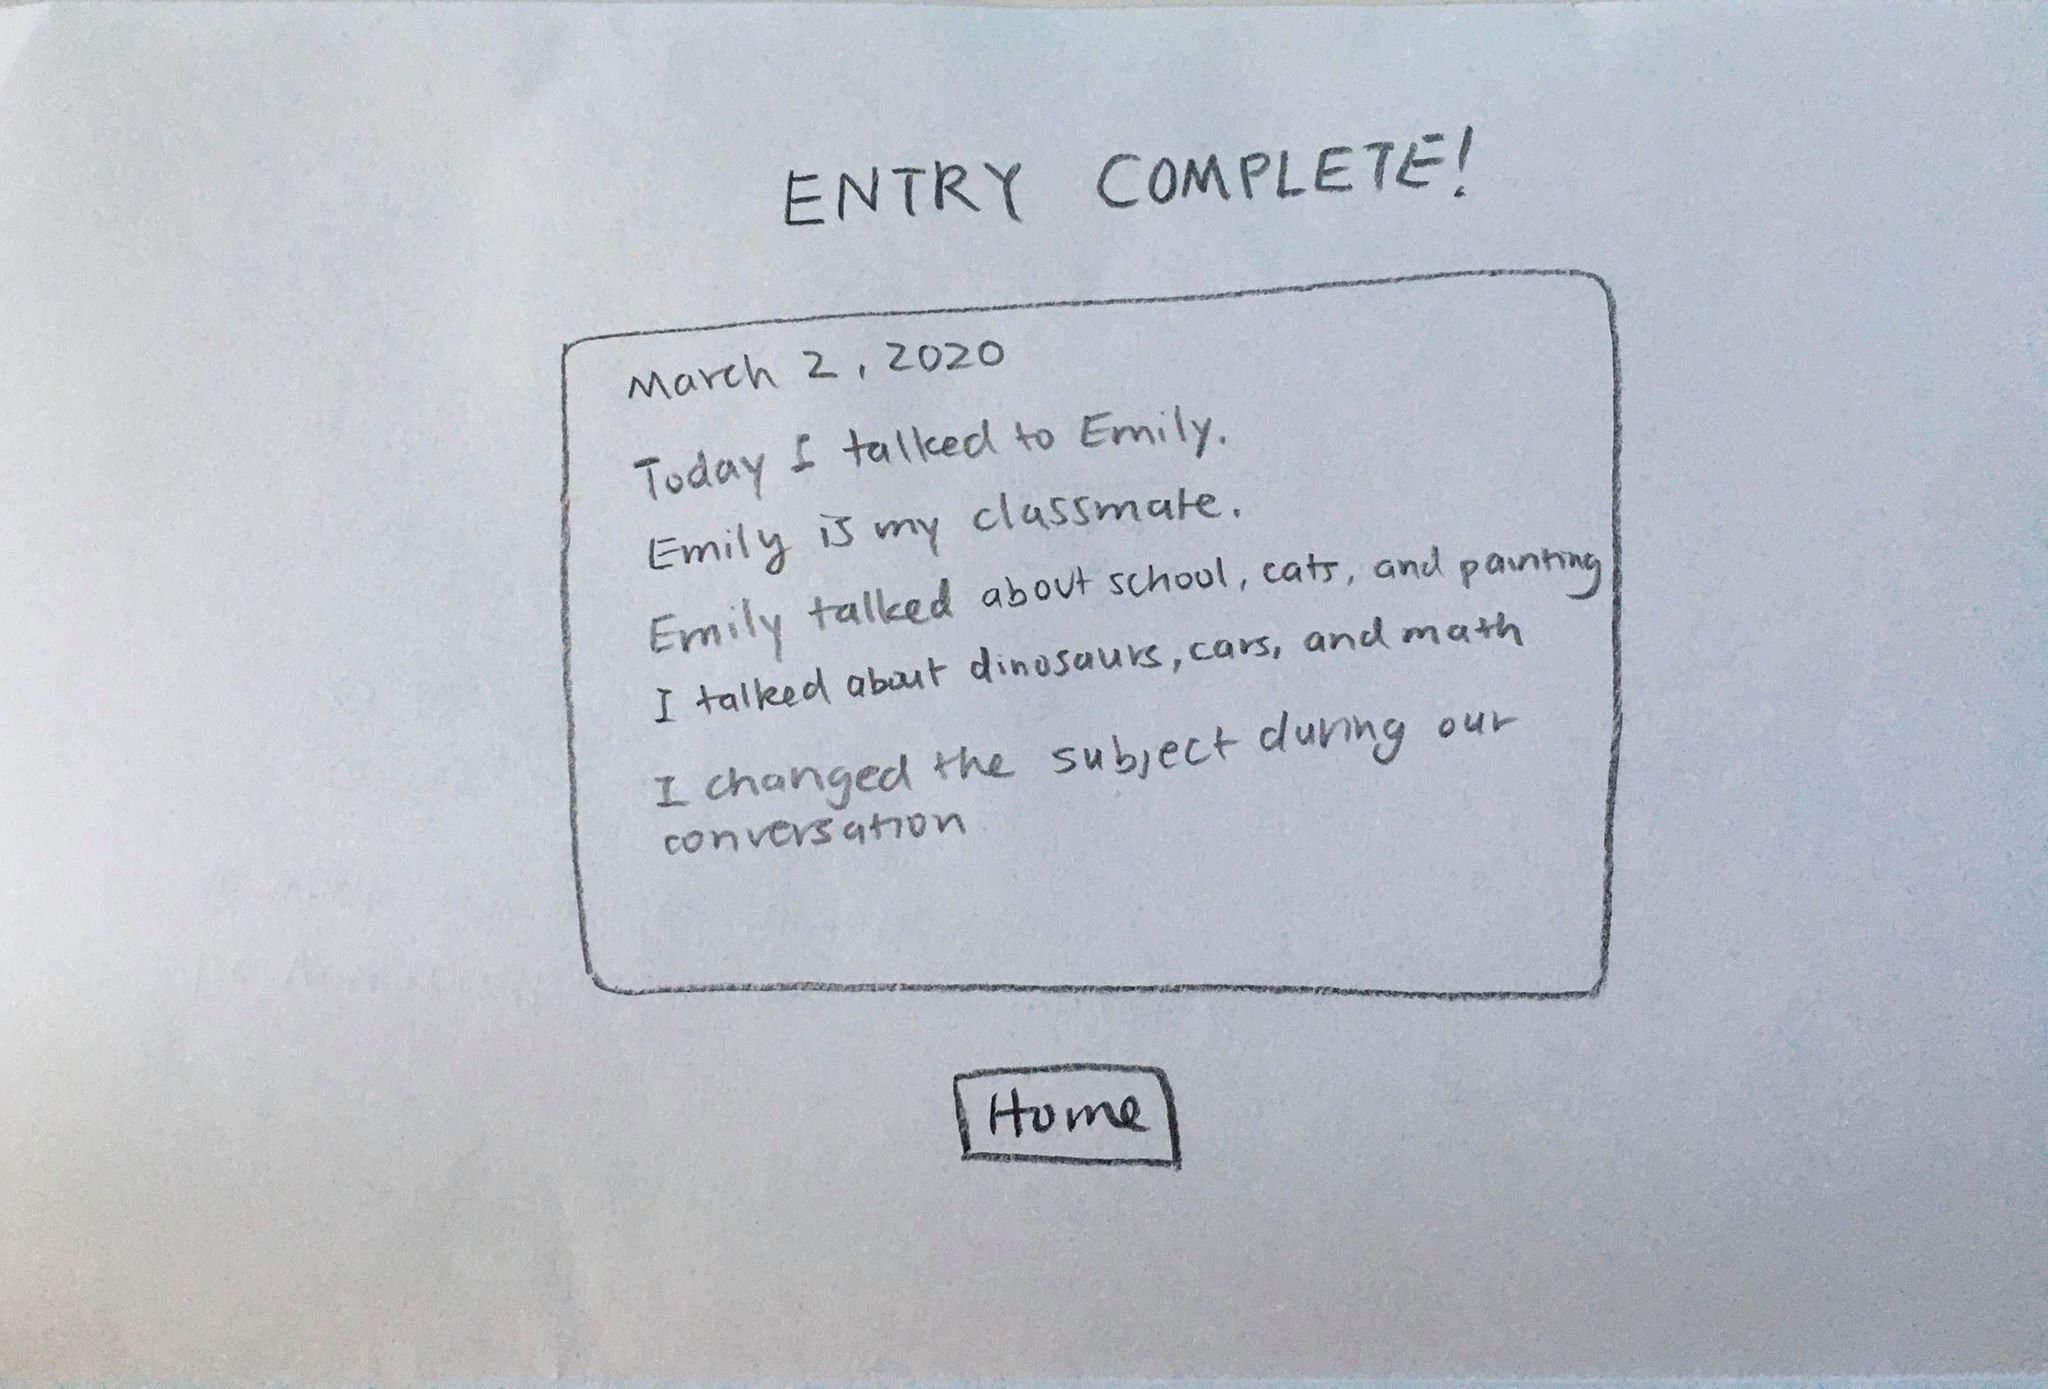 ENTRY COMPLETE!
March 2, 2020
Today I talked to Emily.
Emily is my classmate.
Emily talked about school, cats, and painting
I talked about dinosaurs, cars, and math
I changed the subject during our
conversation
Home